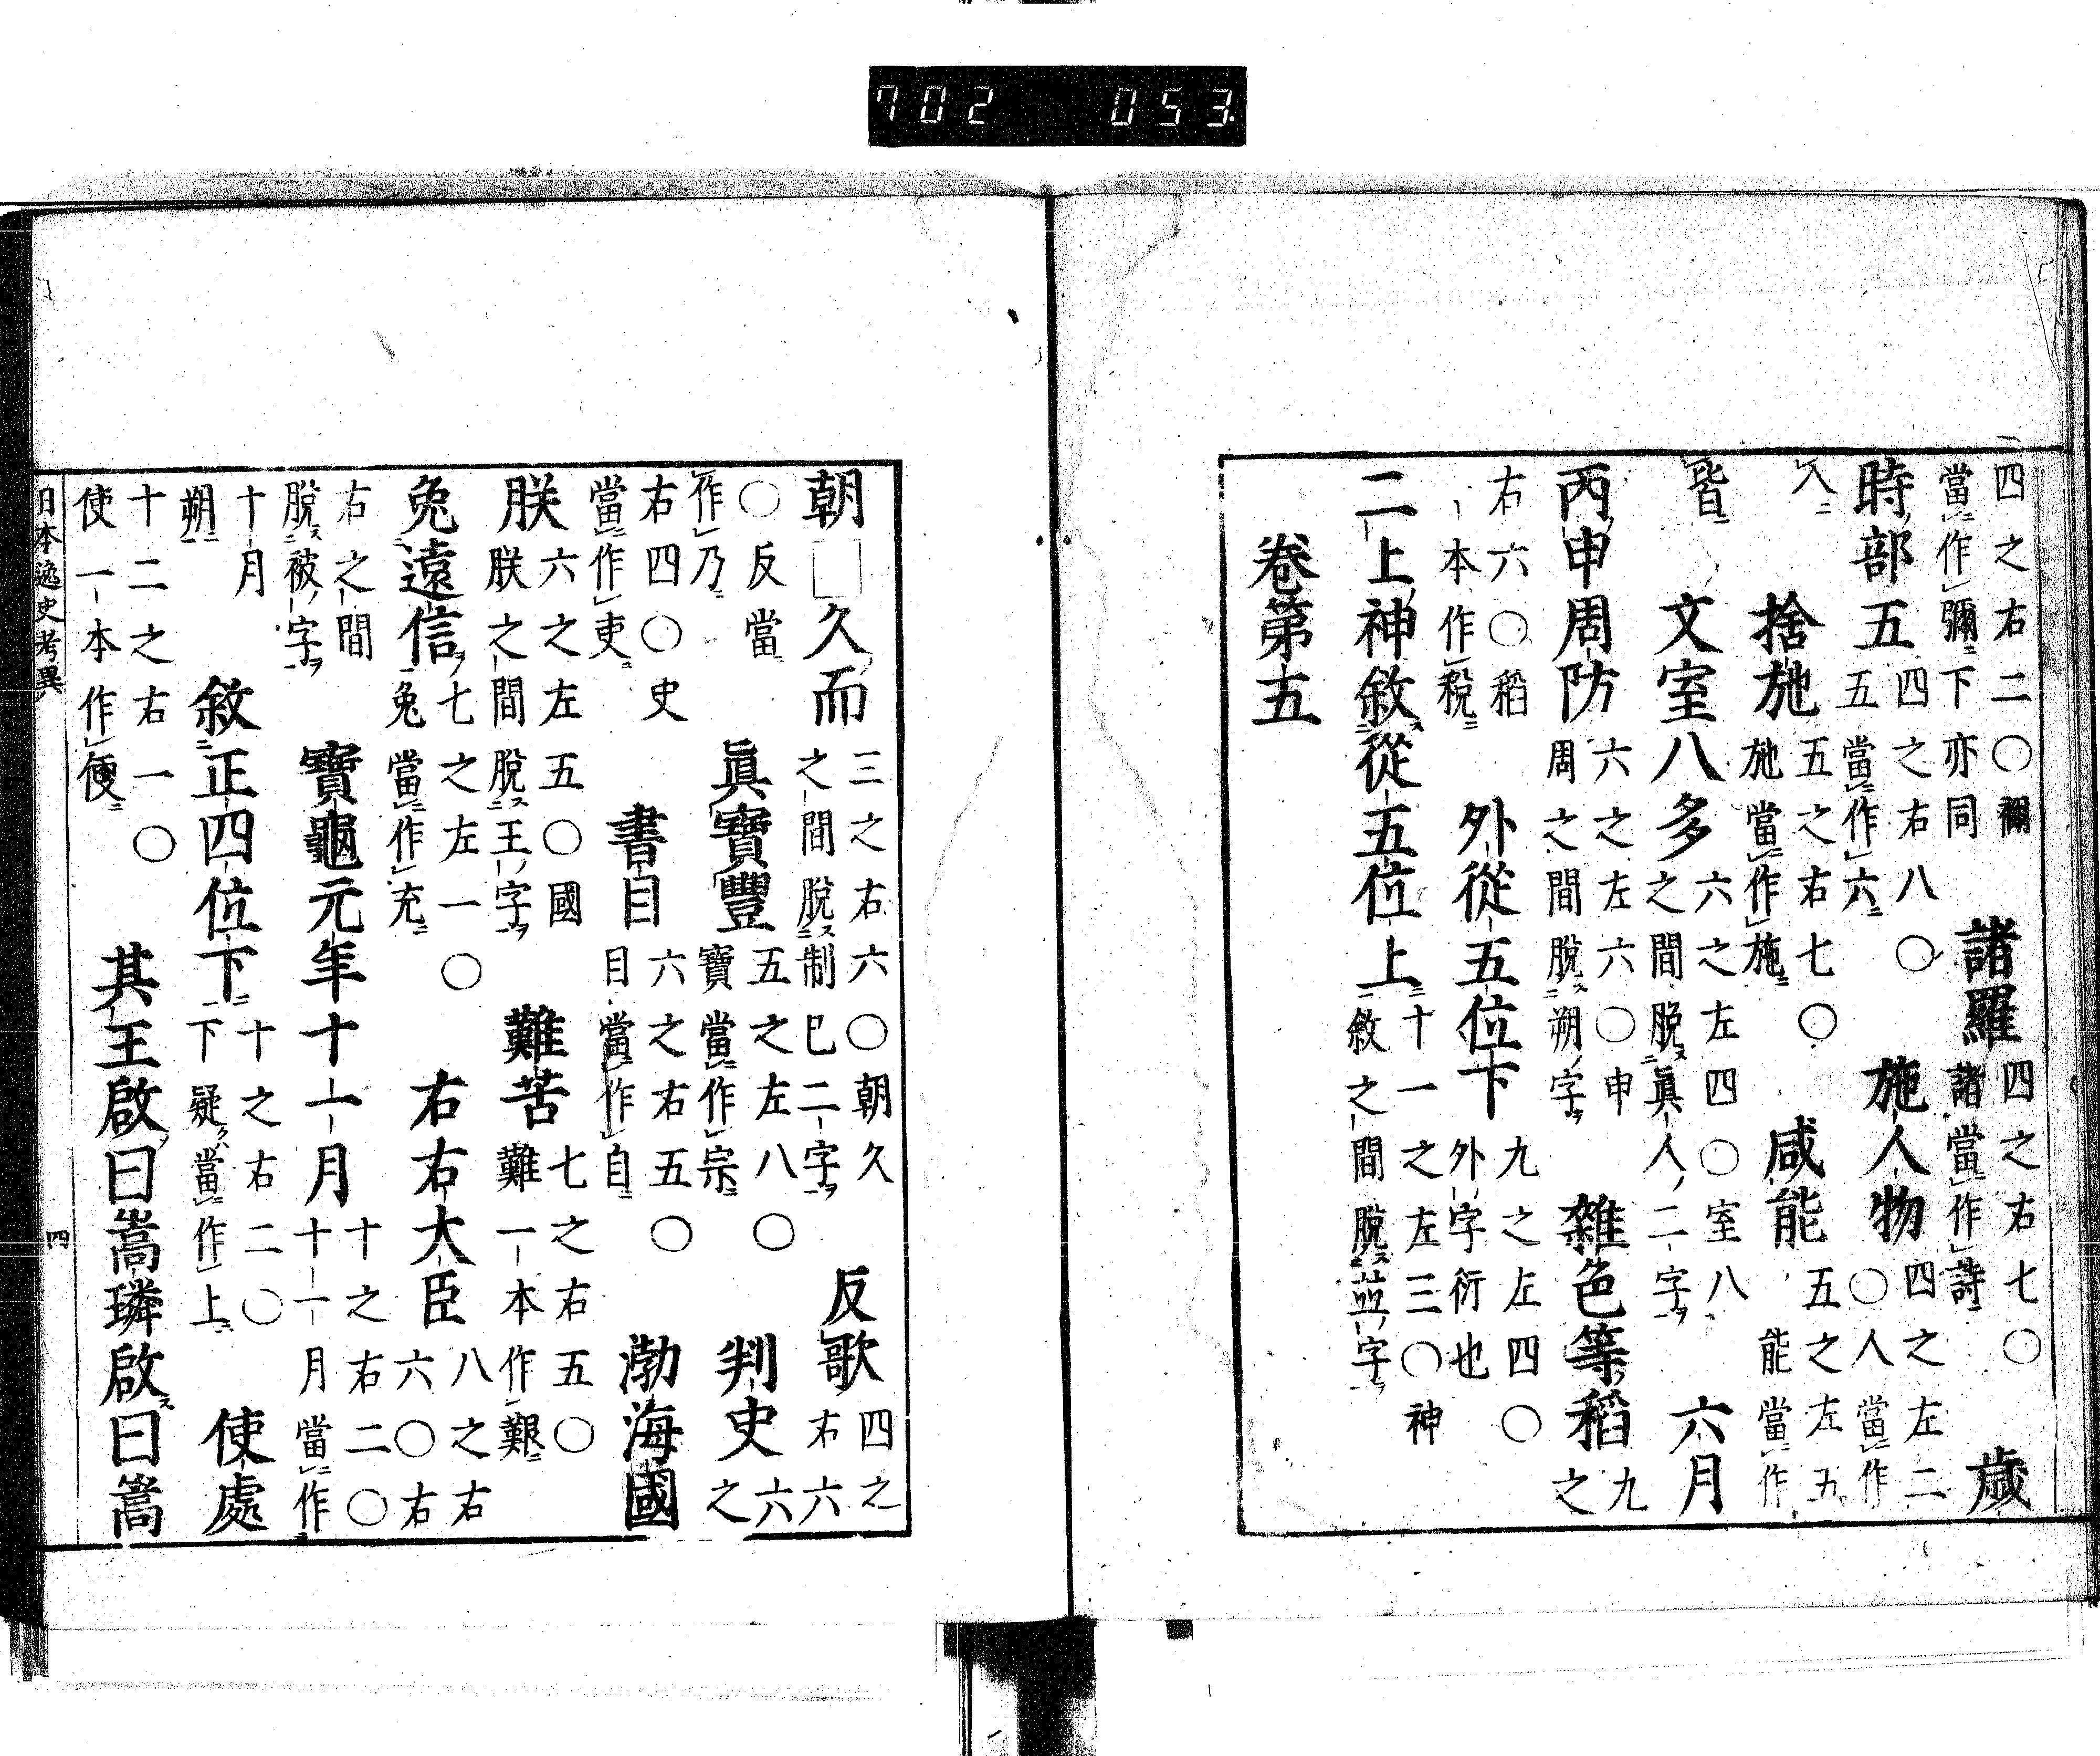 702 053
四之右二〇禰當作彌下亦同 諸羅 四之右七〇諸當作詩 歲
時部五 四之右八〇五當作六 施人物 四之左二〇人當作
入 捨施 五之右七〇施當作施 咸能 五之左五能當作
皆 文室八多 六之左四〇室八之間脫眞人二字 六月
丙申周防 六之左六〇申周之間脫朔字 雜色等稻 九之
右六〇稻一本作税 外從五位下 九之左四〇外字衍也
二上神敘從五位上 十一之左三〇神敘之間脫並字
卷第五
朝□久而 三之右六〇朝久之間脫制已二字 反歌 四之右六
〇反當作乃 眞寶豐 五之左八〇寶當作宗 判史 六之
右四〇史當作吏 書目 六之右五〇目當作自 渤海國
朕 六之左五〇國朕之間脫王字 難苦 七之右五〇難一本作艱
兔遠信 七之左一〇兔當作充 右右大臣 八之右六〇右
右之間脫被字 寶龜元年十一月 十之右二〇十一月當作
十月朔 敘正四位下 十之右二〇下疑當作上 使處
十二之右一〇使一本作便 其王啟曰嵩璘啟曰嵩
日本逸史考異 四